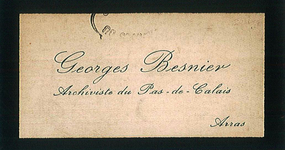 Georges Besnier
Archiviste du Pas-de-Calais
Arras